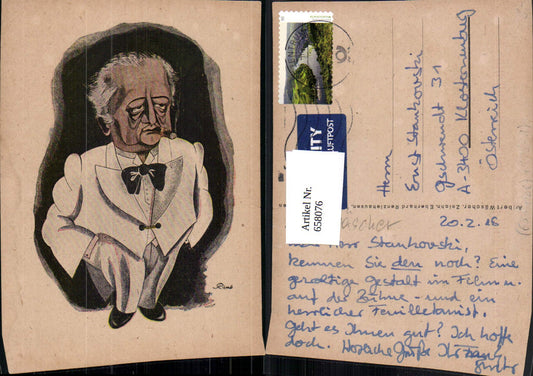 PRIORITY
LUFTPOST
Artikel Nr.
658076
Herrn
Ernst Stankovski
Gschwendt 31
A-3400 Klosterneuburg
Österreich
Albert Wäscher, Zeichn. Eberhard
20.2.16
Herr Stankovski,
kennen Sie den noch? Eine
großartige Gestalt im Film u.
auf der Bühne - und ein
herrlicher Feuilletonist.
Geht es Ihnen gut? Ich hoffe
doch. Herzliche Grüße Ihr